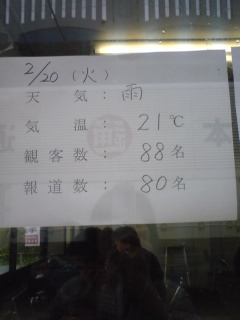 2/20(火)
天気:雨
気温:21℃
観客数:88名
報道数:80名
本